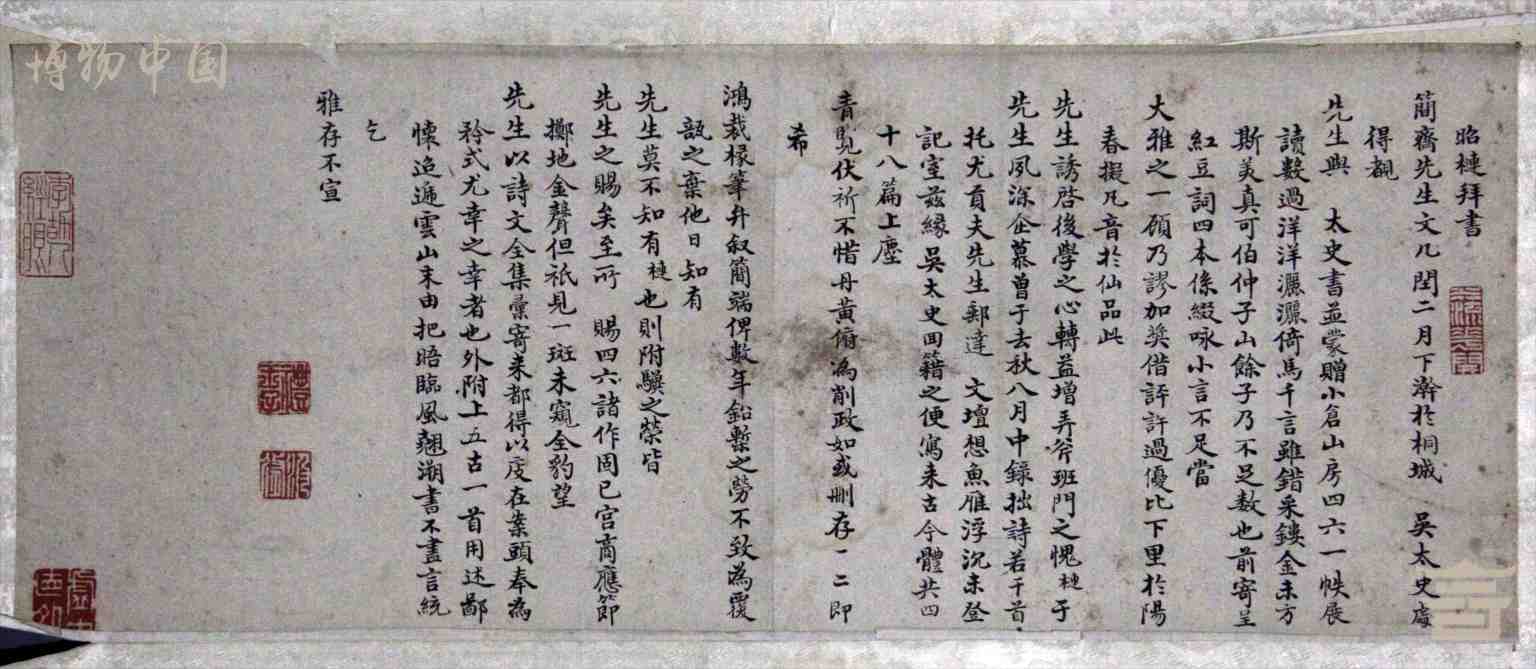 昭槤拜書
簡齋先生文几閏二月下澣於桐城 吳太史處
得覩
先生與 太史書並蒙贈小倉山房四六一帙展
讀數過洋洋灑灑倚馬千言雖錯采鏤金未方
斯美真可伯仲子山餘子乃不足数也前寄呈
紅豆詞四本係綴咏小言不足當
大雅之一顧乃謬加奖借評許過優比下里於陽
春擬凡音於仙品此
先生誘啓後學之心轉益增弄斧班門之愧槤于
先生夙深企慕曾于去秋八月中録拙詩若干首
托尤貢夫先生郵達 文壇想魚雁浮沉未登
記室茲緣 吳太史回籍之便寫来古今體共四
十八篇上塵
青覽伏祈不惜丹黄俯為削政如或刪存一二即
希
鴻裁椽筆弁叙簡端俾數年鉛槧之勞不致為覆
瓿之棄他日知有
先生莫不知有槤也則附驥之榮皆
先生之賜矣至所 賜四六諸作固已宫商應節
擲地金聲但祇見一斑未窺全豹望
先生以詩文全集彙寄来都得以庋在案頭奉為
矜式尤幸之幸者也外附上五古一首用述鄙
懷迢遞雲山末由把晤臨風翹溯書不盡言統
乞
雅存不宣
博物中国